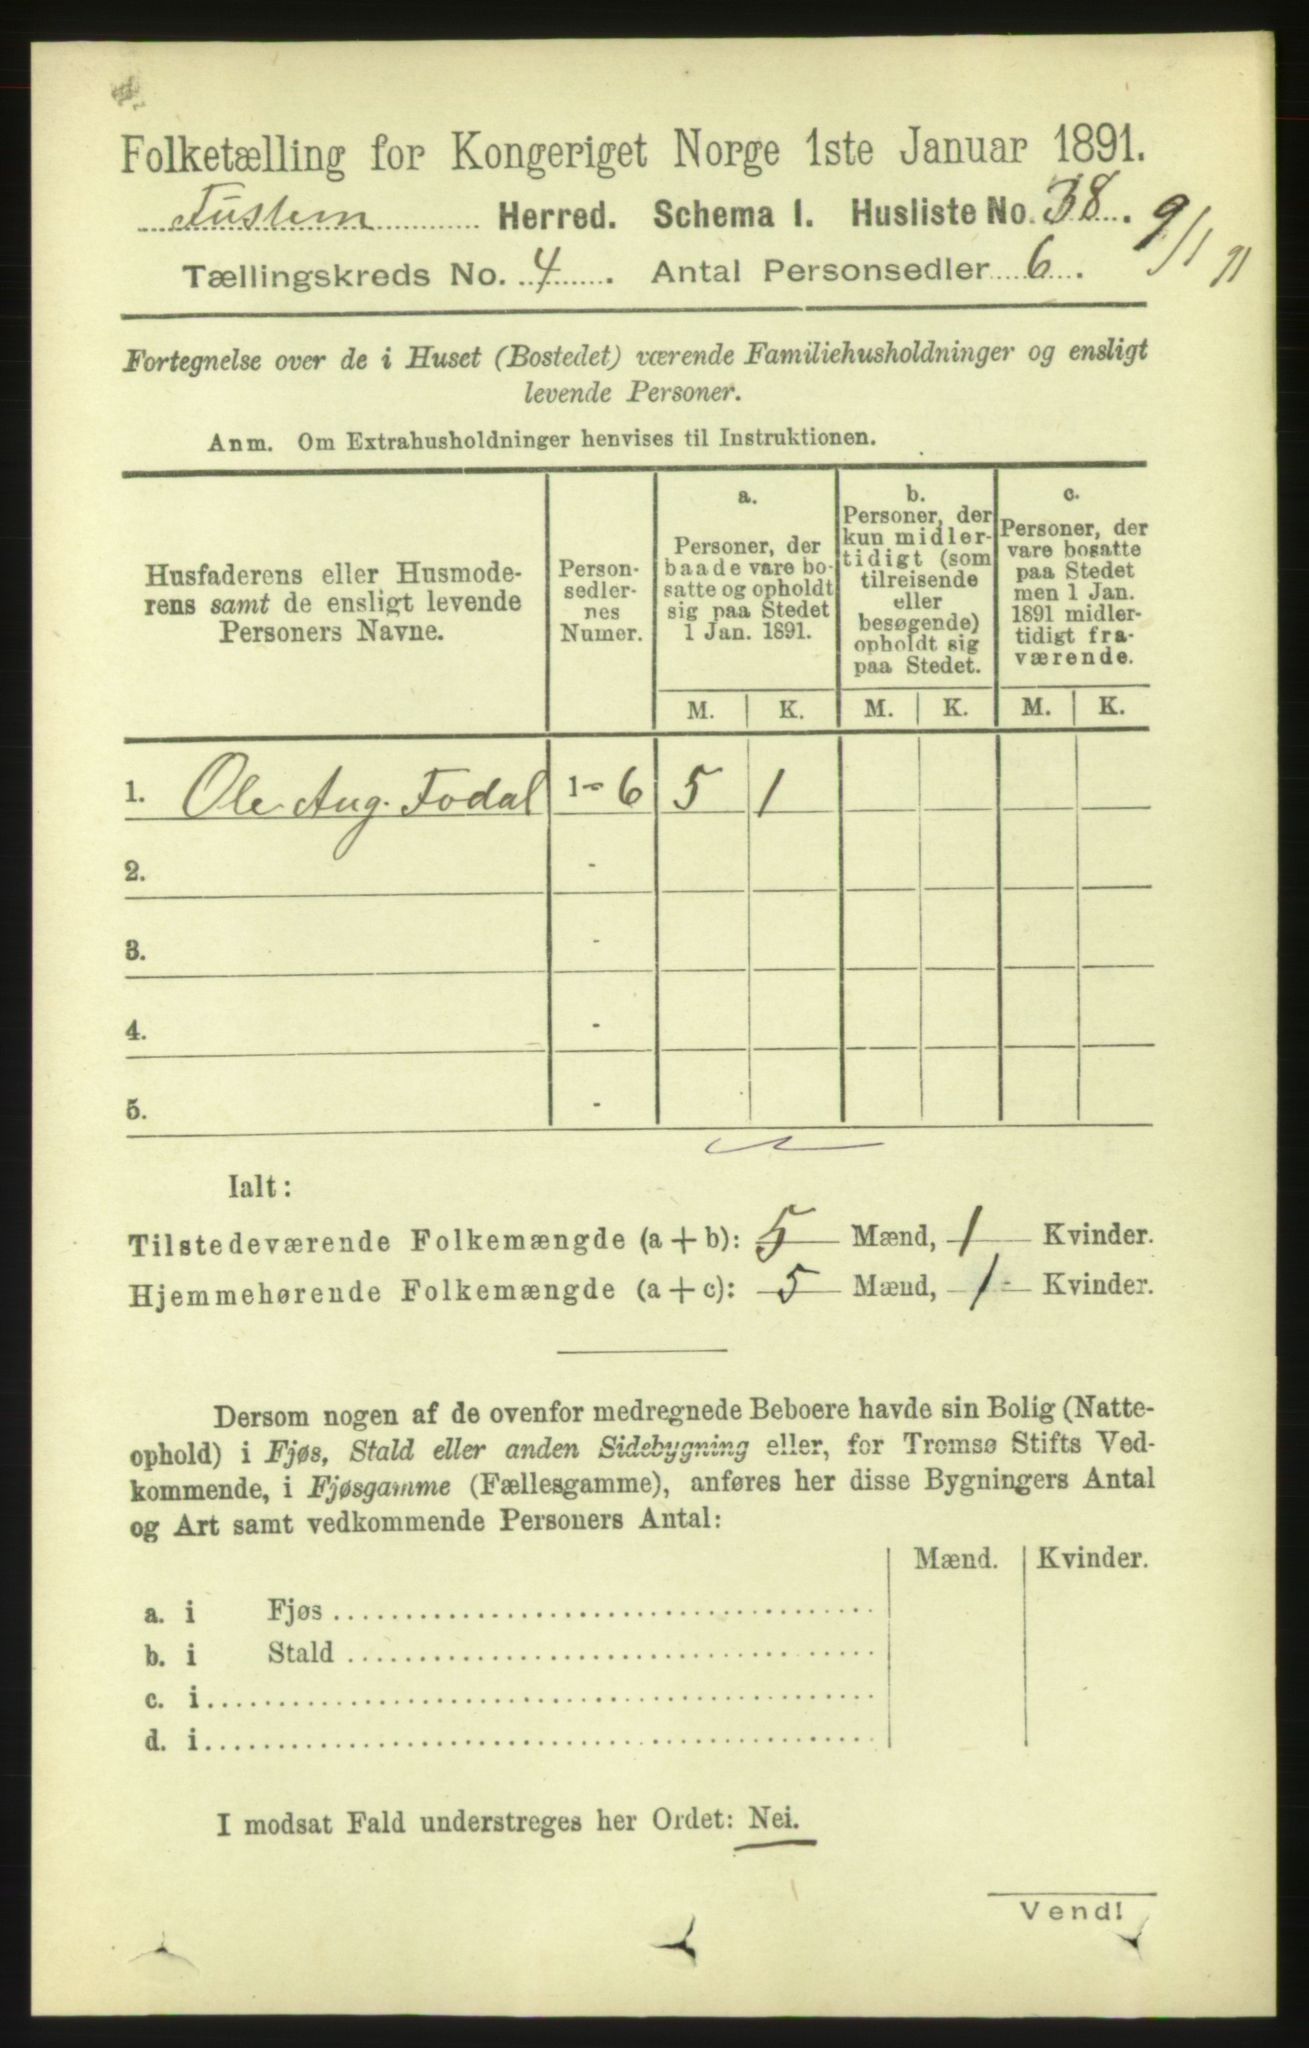 Folketælling for Kongeriget Norge 1ste Januar 1891.
Tustern Herred. Schema 1. Husliste No. 38. 9/1 91
Tællingskreds No. 4. Antal Personsedler 6.
Fortegnelse over de i Huset (Bostedet) værende Familiehusholdninger og ensligt
levende Personer.
Anm. Om Extrahusholdninger henvises til Instruktionen.
Husfaderens eller Husmode-
rens samt de ensligt levende
Personers Navne.
Person-
sedler-
nes
Numer.
a.
Personer, der
baade vare bo-
satte og opholdt
sig paa Stedet
1 Jan. 1891.
b.
Personer, der
kun midler-
tidigt (som
tilreisende
eller
besøgende)
opholdt sig
paa Stedet.
c.
Personer, der
vare bosatte
paa Stedet
men 1 Jan.
1891 midler-
tidigt fra-
værende.
M. K. M. K. M. K.
1. Ole Aug. Fodal 1 - 6 5 1
2. -
3. -
4. -
5. -
Ialt:
Tilstedeværende Folkemængde (a + b): 5 Mænd, 1 Kvinder.
Hjemmehørende Folkemængde (a + c): 5 Mænd, 1 Kvinder.
Dersom nogen af de ovenfor medregnede Beboere havde sin Bolig (Natte-
ophold) i Fjøs, Stald eller anden Sidebygning eller, for Tromsø Stifts Ved-
kommende, i Fjøsgamme (Fællesgamme), anføres her disse Bygningers Antal
og Art samt vedkommende Personers Antal:
Mænd. Kvinder.
a. i Fjøs
b. i Stald
c. i
d. i
I modsat Fald understreges her Ordet: Nei.
Vend!